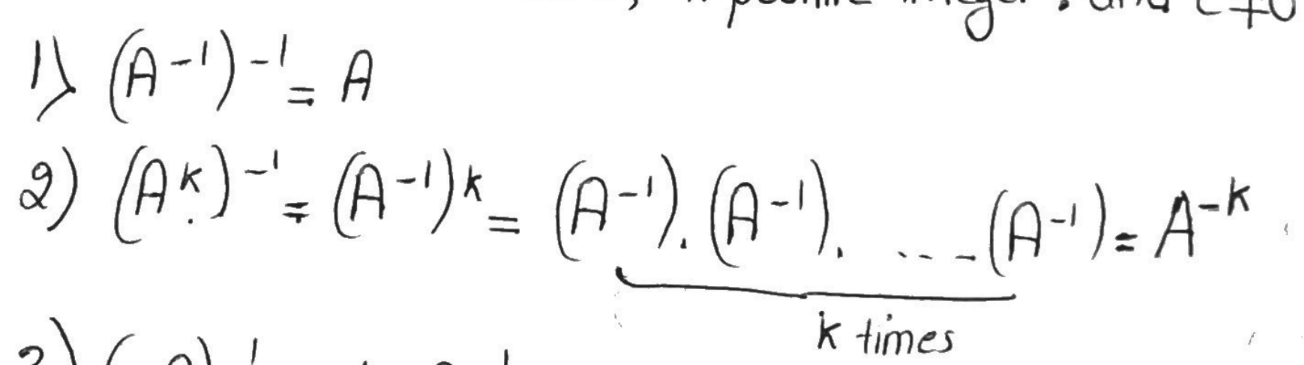 positive integer. and c≠0
1) (A⁻¹)⁻¹ = A
2) (Aᵏ)⁻¹ = (A⁻¹)ᵏ = (A⁻¹).(A⁻¹). .... (A⁻¹) = A⁻ᵏ
k times